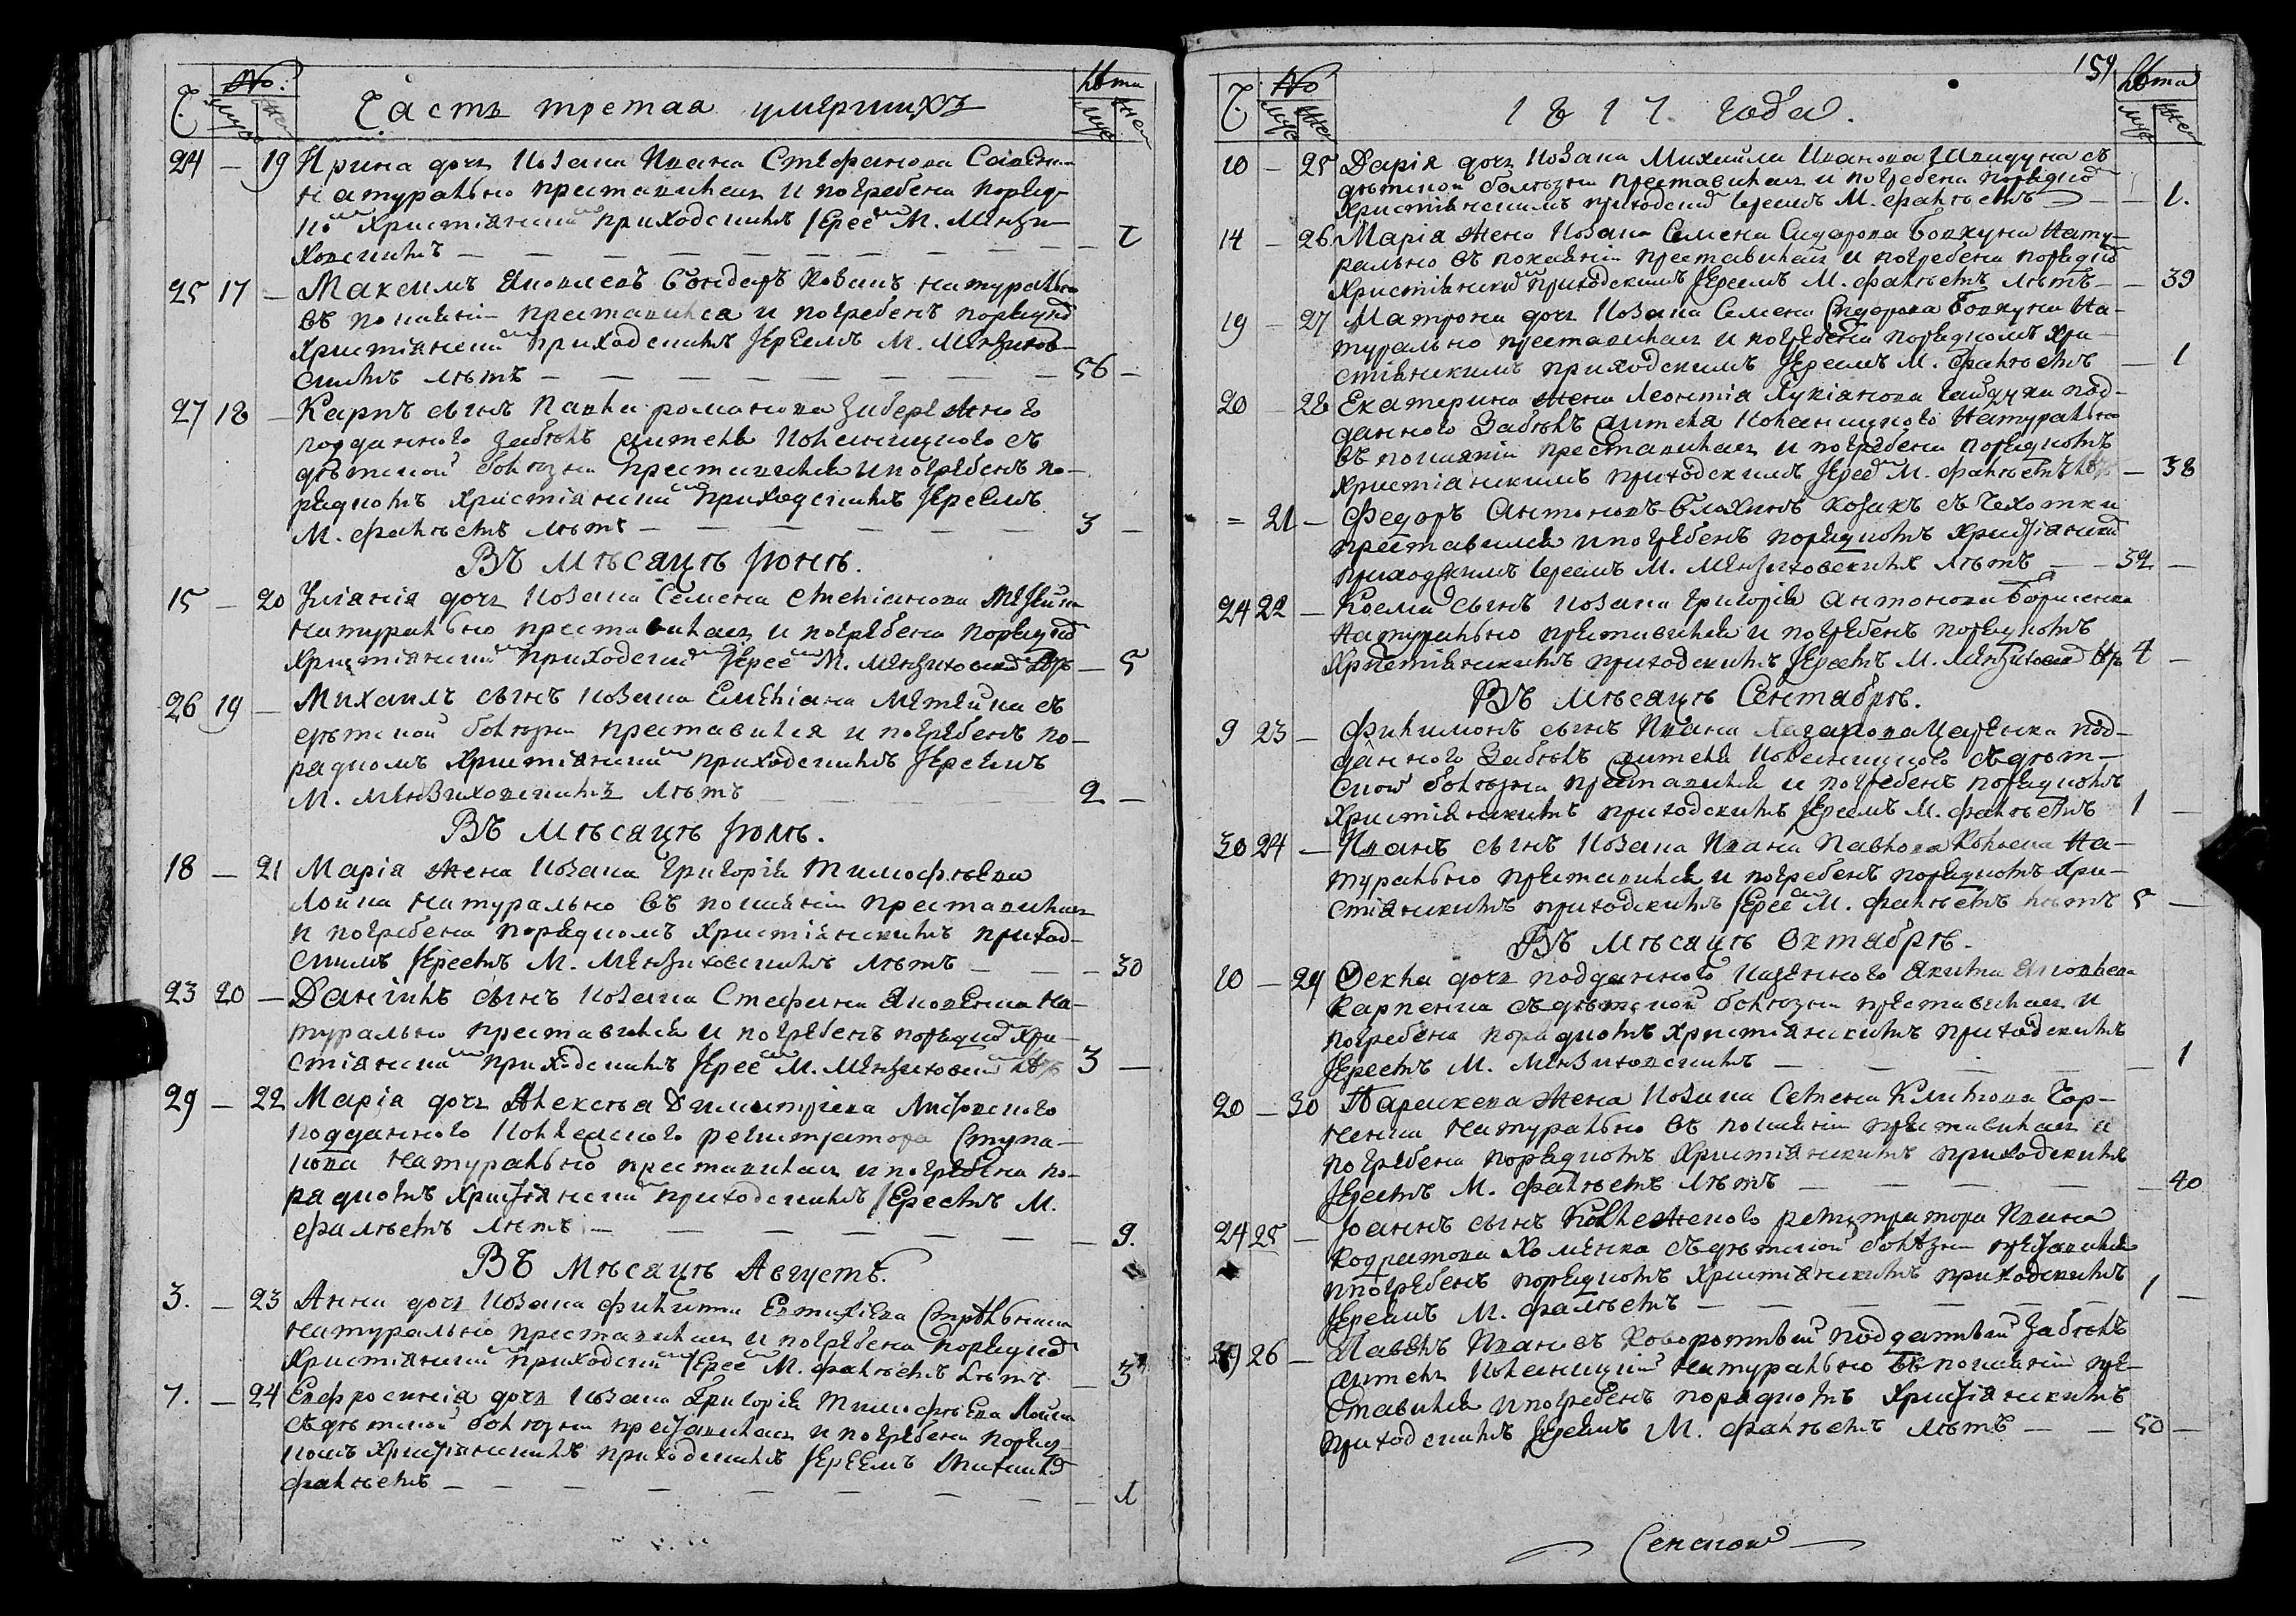 Ч. № Муж Жен Часть третая умершихъ Лѣта Муж Жен
24 — 19 Ирина дочь козака Ивана Стефанова
натурально преставилась и погребена поряд-
комъ христіанскимъ приходскимъ Іереемъ М. Мензи-
ховскимъ — —
25 17 — Максимъ Яковлевъ Бондарь козакъ натурально
въ покаяніи преставился и погребенъ порядкомъ
христіанскимъ приходскимъ Іереемъ М. Мензихов-
скимъ лѣтъ — 56 —
27 18 — Карпъ сынъ Павла романова
подданного Забѣлъ
дѣтской болѣзни преставился и погребенъ по-
рядкомъ христіанскимъ приходскимъ Іереемъ
М. фалѣемъ лѣтъ — 3 —
Въ мѣсяцѣ Іюнѣ.
15 — 20 Уліанія дочь козака Семена
натурально преставилась и погребена порядкомъ
христіанскимъ приходскимъ Іереемъ М. Мензиховскимъ — 5
26 19 — Михаилъ сынъ козака Емеліана съ
дѣтской болѣзни преставился и погребенъ по-
рядкомъ христіанскимъ приходскимъ Іереемъ
М. Мензиховскимъ лѣтъ 2 —
Въ мѣсяцѣ Іюлѣ.
18 — 21 Марія жена козака Григорія Тимофѣева
Лойка натурально въ покаяніи преставилась
и погребена порядкомъ христіанскимъ приход-
скимъ Іереемъ М. Мензиховскимъ лѣтъ — 30
23 20 — Даніилъ сынъ козака Стефана Яковенка на-
турально преставился и погребенъ порядкомъ хри-
стіанскимъ приходскимъ Іереемъ М. Мензиховскимъ 3 —
29 — 22 Марія дочь Алексѣя Димитріева
подданного колежского регистратора Ступа-
кова натурально преставилась и погребена по-
рядкомъ христіанскимъ приходскимъ Іереемъ М.
фалѣемъ лѣтъ — 9.
Въ мѣсяцѣ Августѣ.
3. — 23 Анна дочь козака филипа Евтихіева
натурально преставилась и погребена порядкомъ
христіанскимъ приходскимъ Іереемъ М. фалѣемъ лѣтъ — 3
7. — 24 Евфросинія дочь козака Григорія Тимофѣева Лойка
съ дѣтской болѣзни преставилась и погребена поряд-
комъ христіанскимъ приходскимъ Іереемъ
фалѣемъ — 1
159
Ч. № Муж Жен 1817 года. Лѣта Муж Жен
10 — 25 Дарія дочь козака Михаила Иванова съ
дѣтской болѣзни преставилась и погребена порядкомъ
христіанскимъ приходскимъ Іереемъ М. фалѣемъ — 1.
14 — 26 Марія жена козака Семена Сидорова Бовкуна нату-
рально въ покаяніи преставилась и погребена порядкомъ
христіанскимъ приходскимъ Іереемъ М. фалѣемъ лѣтъ — 39
19 — 27 Матрона дочь козака Семена Сидорова Бовкуна на-
турально преставилась и погребена порядкомъ хри-
стіанскимъ приходскимъ Іереемъ М. фалѣемъ — 1
20 — 28 Екатерина жена Леонтія Лукіанова Гайдука под-
данного Забѣлъ натурально
въ покаяніи преставилась и погребена порядкомъ
христіанскимъ приходскимъ Іереемъ М. фалѣемъ — 38
= 21 — Федоръ Антоновъ козакъ съ чехотки
преставился и погребенъ порядкомъ христіанскимъ
приходскимъ Іереемъ М. Мензиховскимъ лѣтъ — 32 —
24 22 — Косма сынъ козака Григорія Антонова Борисенка
натурально преставился и погребенъ порядкомъ
христіанскимъ приходскимъ Іереемъ М. Мензиховскимъ 4 —
Въ мѣсяцѣ Сентябрѣ.
9 23 — Филимонъ сынъ Ивана под-
данного Забѣлъ съ дѣт-
ской болѣзни преставился и погребенъ порядкомъ
христіанскимъ приходскимъ Іереемъ М. фалѣемъ 1 —
30 24 — Иванъ сынъ козака Ивана Павлова на-
турально преставился и погребенъ порядкомъ хри-
стіанскимъ приходскимъ Іереемъ М. фалѣемъ лѣтъ 5 —
Въ мѣсяцѣ Октябрѣ.
10 — 29 Ѳекла дочь подданного казенного Якима Яковлева
Карпенка съ дѣтской болѣзни преставилась и
погребена порядкомъ христіанскимъ приходскимъ
Іереемъ М. Мензиховскимъ — 1
20 — 30 Параскева жена козака Семена Климова Гор-
ненка натурально въ покаяніи преставилась и
погребена порядкомъ христіанскимъ приходскимъ
Іереемъ М. фалѣемъ лѣтъ — 40
24 25 — Іоаннъ сынъ колежского регистратора Ивана
Кодратова Хоменка съ дѣтской болѣзни преставился
и погребенъ порядкомъ христіанскимъ приходскимъ
Іереемъ М. фалѣемъ — 1 —
29 26 — Павелъ Ивановъ подданный Забѣлъ
натурально въ покаяніи пре-
ставился и погребенъ порядкомъ христіанскимъ
приходскимъ Іереемъ М. фалѣемъ лѣтъ — 50 —